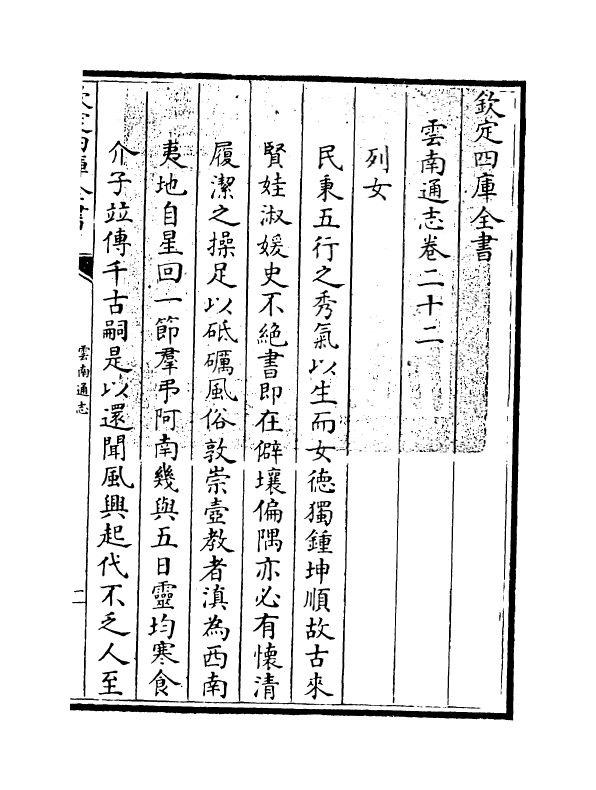 欽定四庫全書
雲南通志卷二十二
列女
民秉五行之秀氣以生而女徳獨鍾坤順故古來
賢娃淑媛史不絶書即在僻壤偏隅亦必有懐清
履潔之操足以砥礪風俗敦崇壼教者滇為西南
夷地自星回一節羣弔阿南幾與五日靈均寒食
介子竝傳千古嗣是以還聞風興起代不乏人至
欽定四庫全書
雲南通志
二